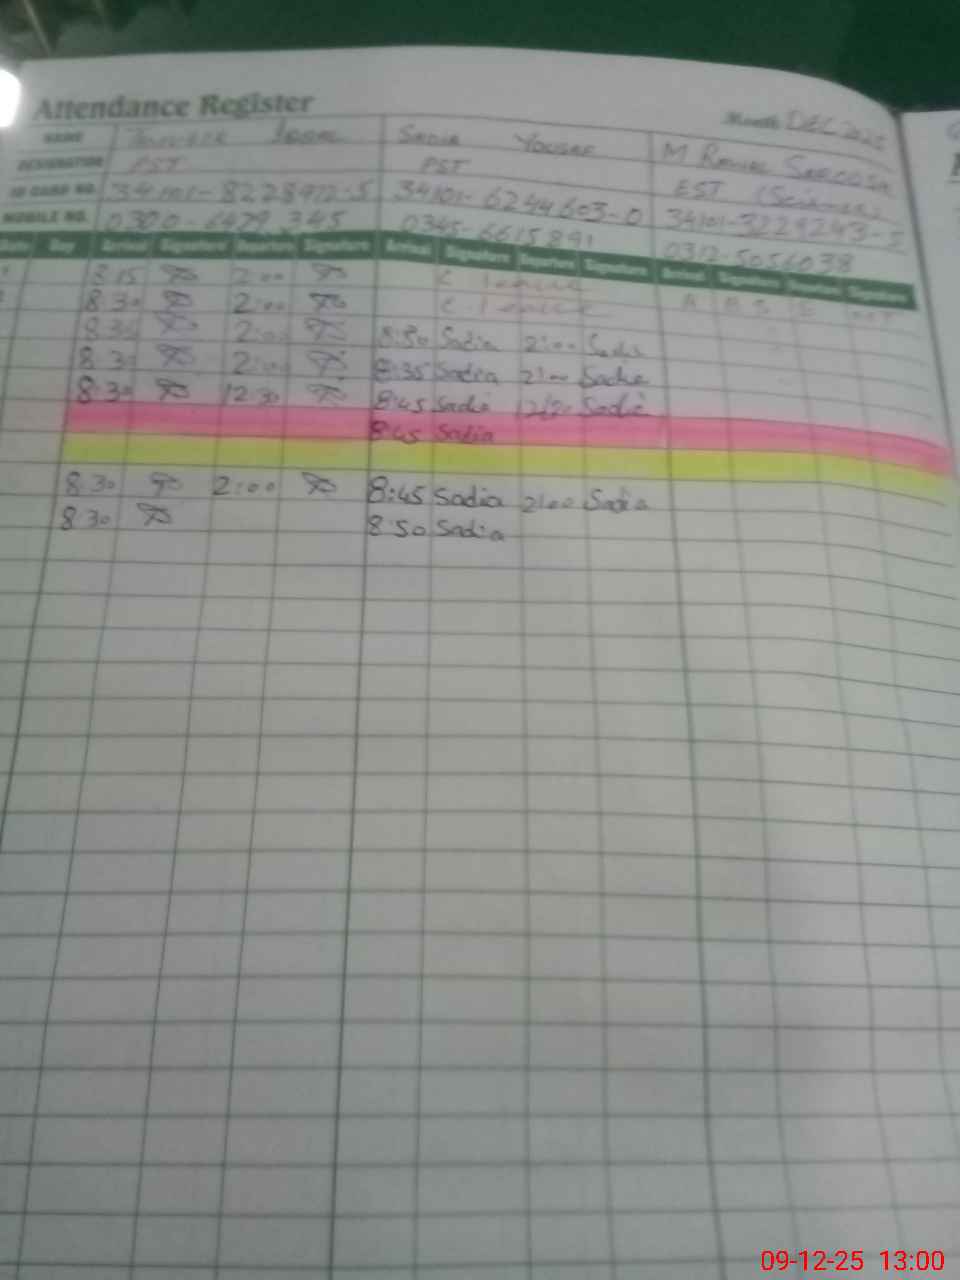 Attendance Register Month DEC 2025
NAME Sadia Yousaf M
DESIGNATION PST PST EST (Science)
ID CARD NO. 34101-8228912-5 34101-6244603-0 34101-3229243-5
MOBILE NO. 0300-6479345 0345-6615891 0312-5056038
Date Day Arrival Signature Departure Signature Arrival Signature Departure Signature Arrival Signature Departure Signature
8:15 2:00 C. Leave
8:30 2:00 C. Leave
8:30 2:00 8:30 Sadia 2:00 Sadia
8:30 2:00 8:35 Sadia 2:00 Sadia
8:30 12:30 8:45 Sadia Sadia
8:45 Sadia
8:30 2:00 8:45 Sadia 2:00 Sadia
8:30 8:50 Sadia
09-12-25 13:00